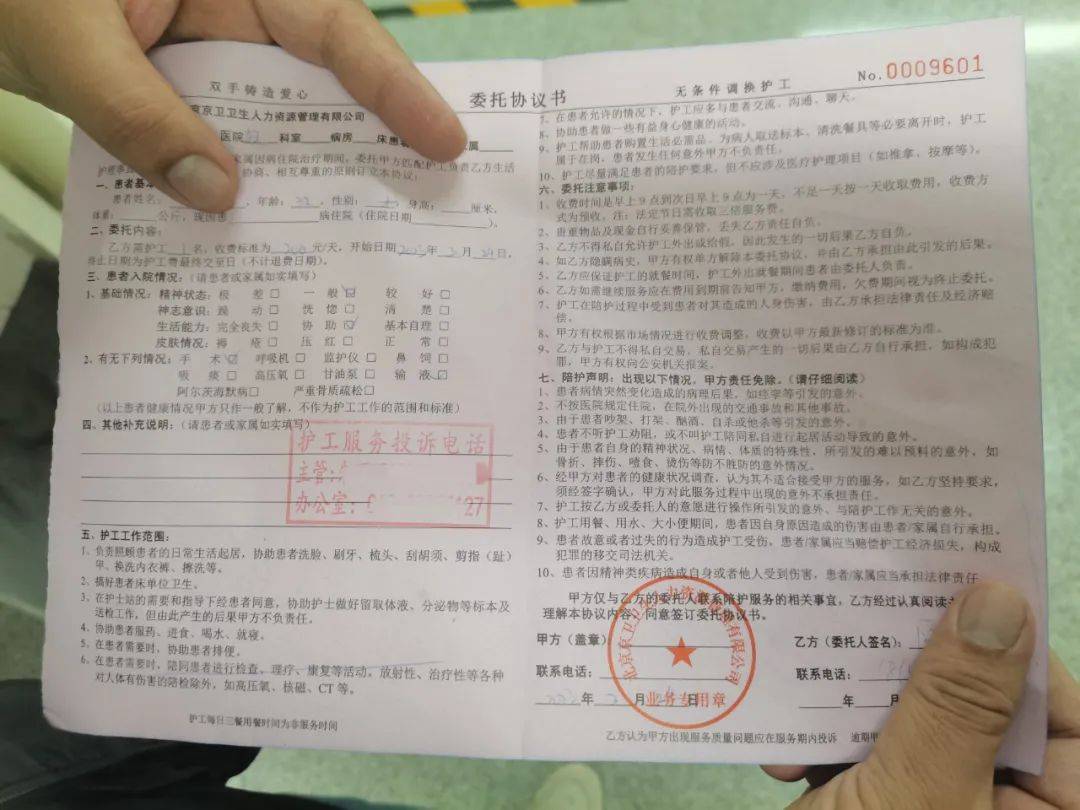 双手铸造爱心
京卫卫生人力资源管理有限公司
医院 科室 病房 床患
家属因病住院治疗期间，委托甲方匹配护工负责乙方生活
协商、相互尊重的原则订立本协议：
一、患者基本
患者姓名： ，年龄： ，性别： 身高： 厘米，
体重： 公斤，现因患 病住院（住院日期 ）。
二、委托内容：
乙方需护工 1 名，收费标准为 200 元/天，开始日期 年 月 日，
终止日期为护工费最终交至日（不计退费日期）。
三、患者入院情况：（请患者或家属如实填写）
1、基础情况：精神状态：极 差□ 一 般☑ 较 好□
神志意识：躁 动□ 恍 惚□ 清 楚□
生活能力：完全丧失□ 协 助☑ 基本自理□
皮肤情况：褥 疮□ 压 红□ 正 常□
2、有无下列情况：手 术☑ 呼吸机□ 监护仪□ 鼻 饲□
吸 痰□ 高压氧□ 甘油泵□ 输 液☑
阿尔茨海默病□ 严重骨质疏松□
（以上患者健康情况甲方只作一般了解，不作为护工工作的范围和标准）
四、其他补充说明：（请患者或家属如实填写）
护工服务投诉电话
主管：
办公室： 27
五、护工工作范围：
1、负责照顾患者的日常生活起居，协助患者洗脸、刷牙、梳头、刮胡须、剪指（趾）
甲、换洗内衣裤、擦洗等。
2、搞好患者床单位卫生。
3、在护士站的需要和指导下经患者同意，协助护士做好留取体液、分泌物等标本及
送检工作，但由此产生的后果甲方不负责任。
4、协助患者服药、进食、喝水、就寝。
5、在患者需要时、协助患者排便。
6、在患者需要时、陪同患者进行检查、理疗、康复等活动。放射性、治疗性等各种
对人体有伤害的陪检除外，如高压氧、核磁、CT 等。
护工每日三餐用餐时间为非服务时间
委托协议书
无条件调换护工
No.0009601
7、在患者允许的情况下，护工应多与患者交流、沟通、聊天。
8、协助患者做一些有益身心健康的活动。
9、护工帮助患者购置生活必需品、为病人取送标本、清洗餐具等必要离开时，护工
属于在岗，患者发生任何意外甲方不负责任。
10、护工尽量满足患者的陪护要求，但不应涉及医疗护理项目（如推拿、按摩等）。
六、委托注意事项：
1、收费时间是早上 9 点到次日早上 9 点为一天，不足一天按一天收取费用，收费方
式为预收。注：法定节日需收取三倍服务费。
2、贵重物品及现金自行妥善保管，丢失乙方责任自负。
3、乙方不得私自允许护工外出或给假，因此发生的一切后果乙方自负。
4、如乙方隐瞒病史，甲方有权单方解除本委托协议，并由乙方承担由此引发的后果。
5、乙方应保证护工的就餐时间，护工外出就餐期间患者由委托人负责。
6、乙方如需继续服务应在费用到期前告知甲方，缴纳费用，欠费期间视为终止委托。
7、护工在陪护过程中受到患者对其造成的人身伤害，由乙方承担法律责任及经济赔
偿。
8、甲方有权根据市场情况进行收费调整，收费以甲方最新修订的标准为准。
9、乙方与护工不得私自交易，私自交易产生的一切后果由乙方自行承担，如构成犯
罪，甲方有权向公安机关报案。
七、陪护声明：出现以下情况，甲方责任免除。（请仔细阅读）
1、患者病情突然变化造成的病理后果，如痉挛等引发的意外。
2、不按医院规定住院，在院外出现的交通事故和其他事故。
3、由于患者吵架、打架、酗酒、自杀或他杀等引发的意外。
4、患者不听护工劝阻，或不叫护工陪同私自进行起居活动导致的意外。
5、由于患者自身的精神状况、病情、体质的特殊性，所引发的难以预料的意外，如
骨折、摔伤、噎食、烫伤等防不胜防的意外情况。
6、经甲方对患者的健康状况调查，认为其不适合接受甲方的服务，如乙方坚持要求，
须经签字确认，甲方对此服务过程中出现的意外不承担责任。
7、护工按乙方或委托人的意愿进行操作所引发的意外、与陪护工作无关的意外。
8、护工用餐、用水、大小便期间，患者因自身原因造成的伤害由患者/家属自行承担。
9、患者故意或者过失的行为造成护工受伤，患者/家属应当赔偿护工经济损失，构成
犯罪的移交司法机关。
10、患者因精神类疾病造成自身或者他人受到伤害，患者/家属应当承担法律责任
甲方仅与乙方的委托人联系陪护服务的相关事宜，乙方经过认真阅读
理解本协议内容，同意签订委托协议书。
甲方（盖章） 乙方（委托人签名）：
联系电话： 联系电话：
年 月 日 年 月
北京京卫卫生人力资源管理有限公司
业务专用章
乙方认为甲方出现服务质量问题应在服务期内投诉 逾期甲